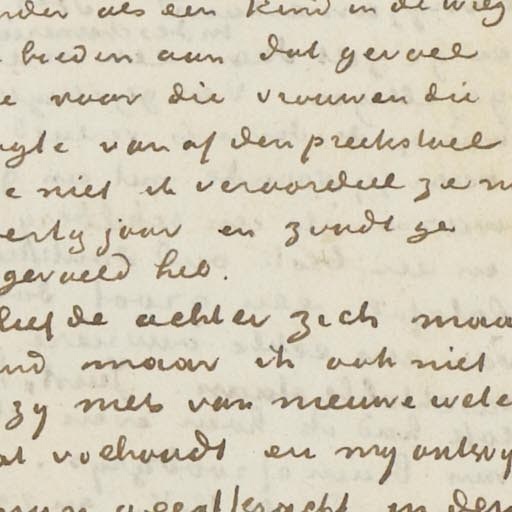 nder als een kind in de wieg
bieden aan dat gevoel
e voor die vrouwen die
ogte van af den preekstoel
e niet ik veroordeel ze n
dertig jaar en zoudt ze
gevoeld heb.
liefde achter zich maa
nd maar ik ook niet
zy niets van nieuwe wete
at volhoudt en my ontwy
geestkracht in den